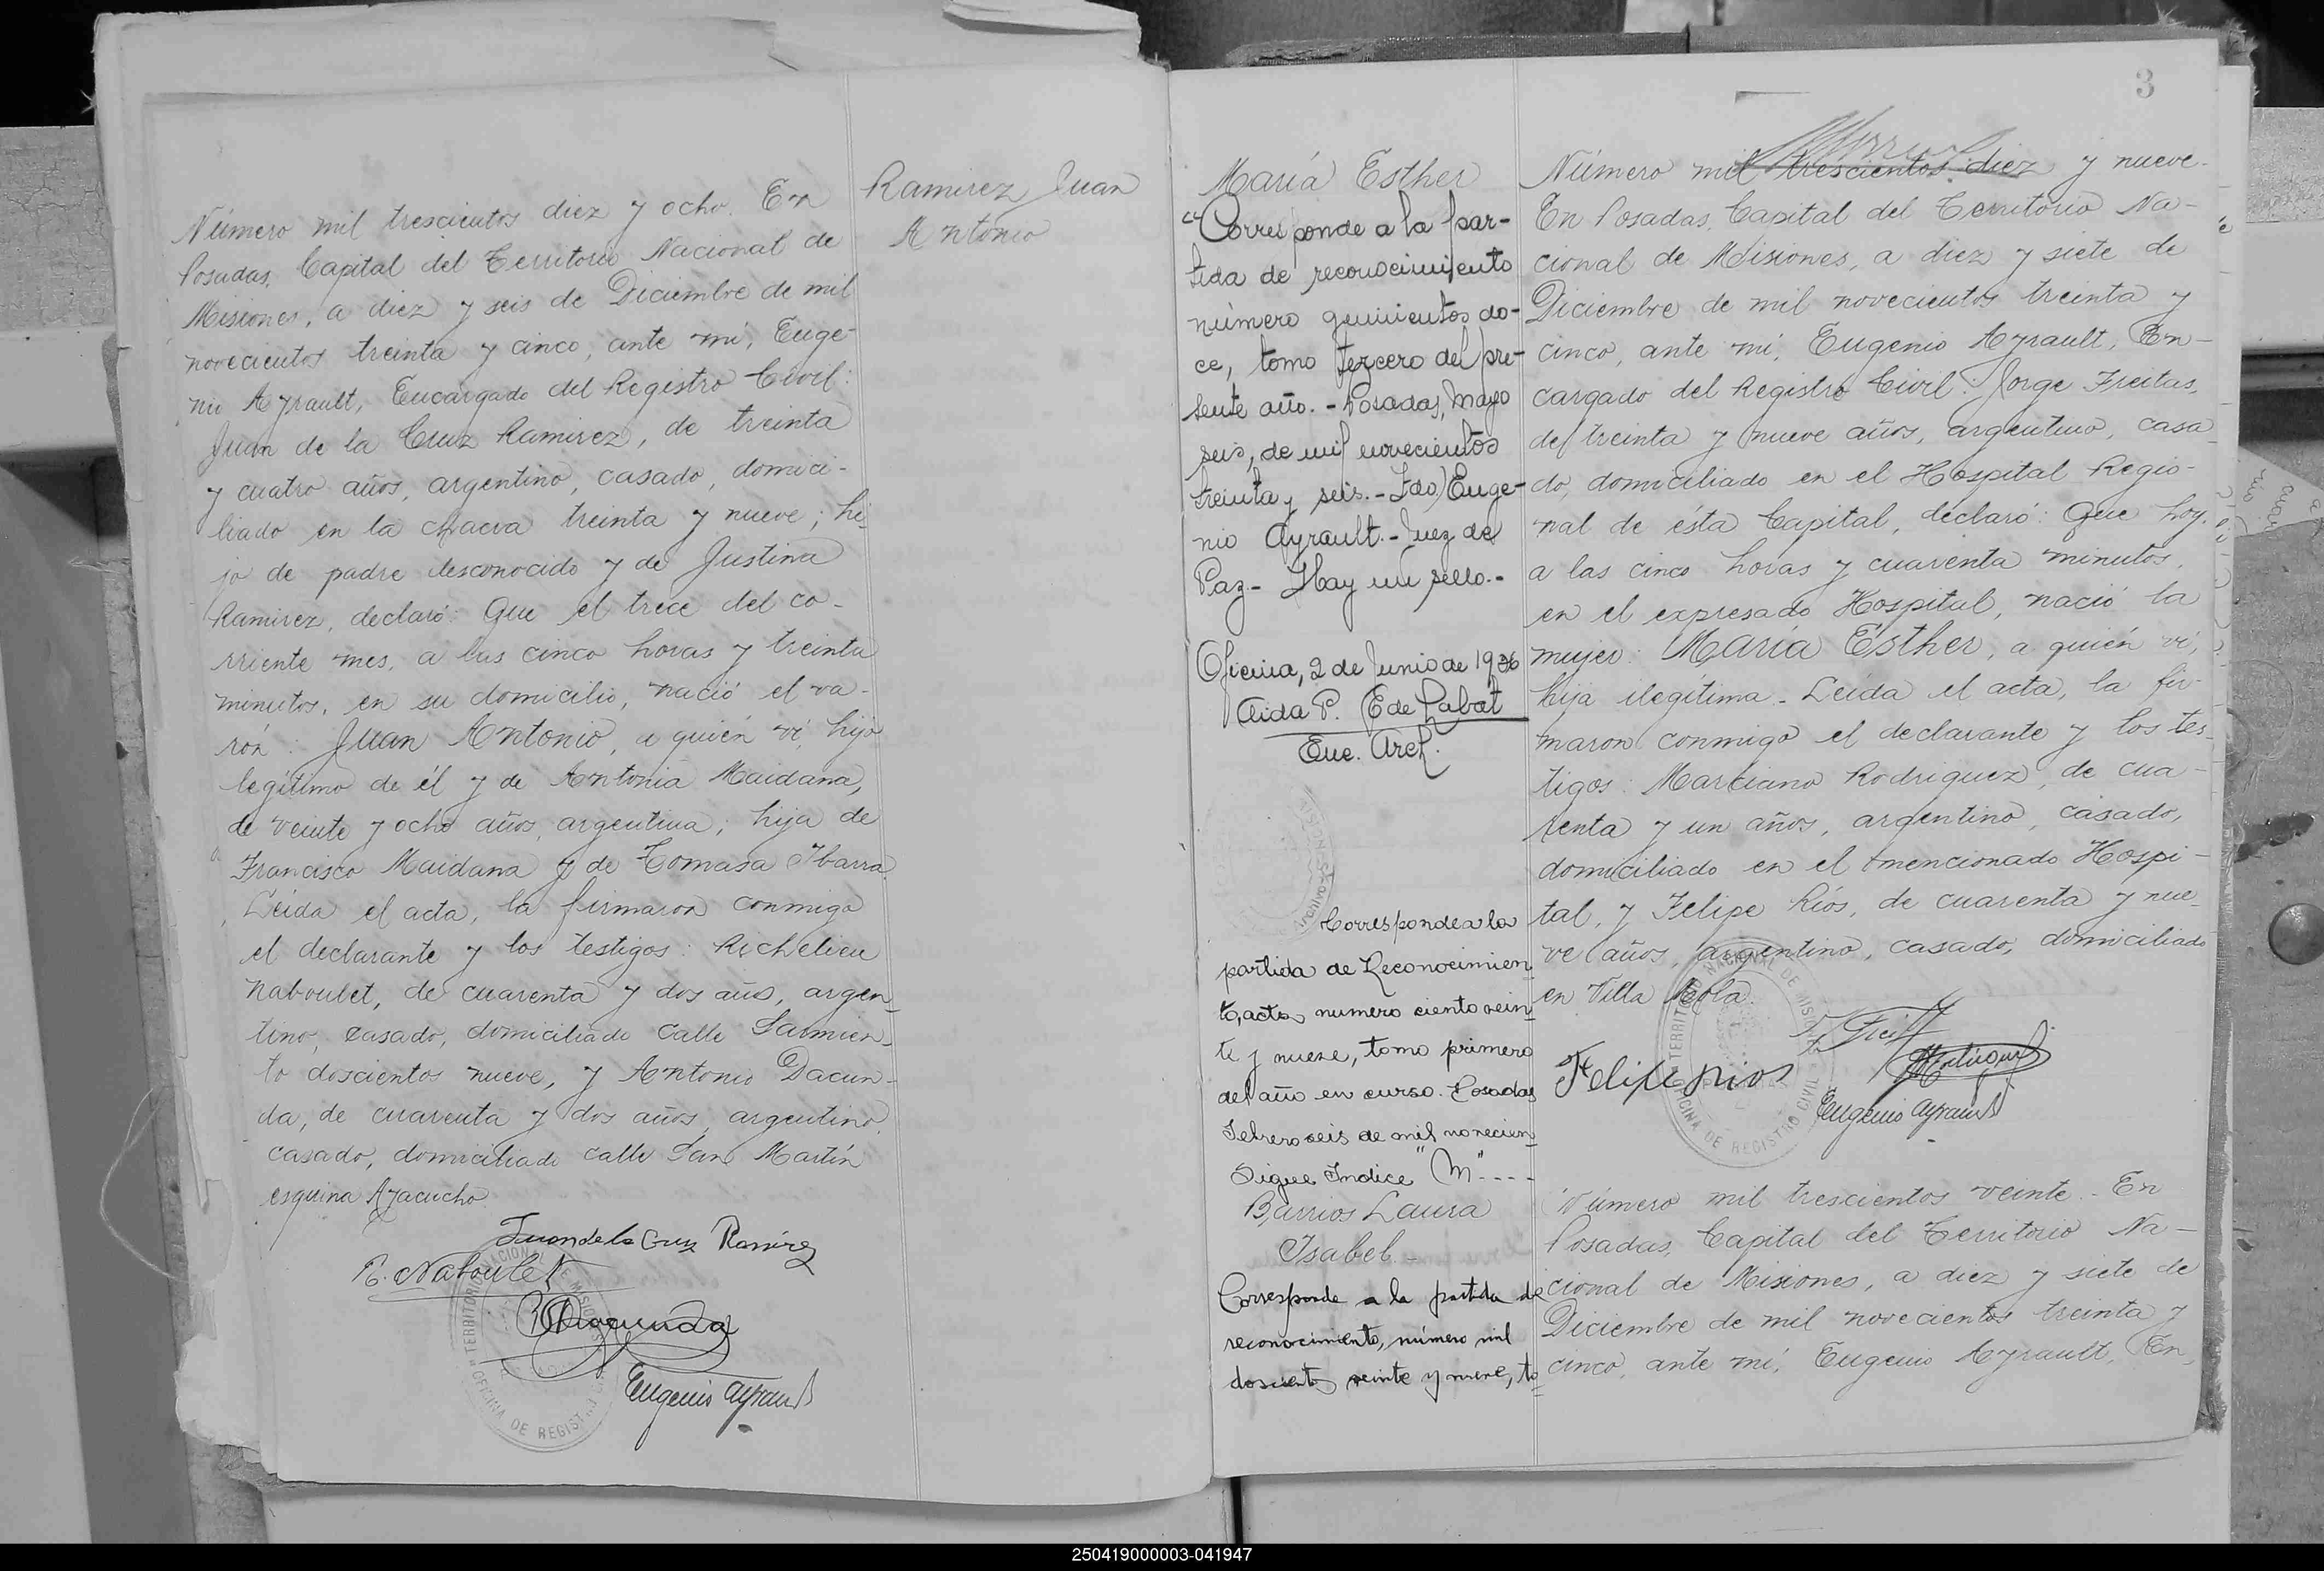 Número mil trescientos diez y ocho. En
Posadas, Capital del Territorio Nacional de
Misiones, a diez y seis de Diciembre de mil
novecientos treinta y cinco, ante mí, Euge-
nio Ayrault, Encargado del Registro Civil:
Juan de la Cruz Ramirez, de treinta
y cuatro años, argentino, casado, domici-
liado en la chacra treinta y nueve; hi-
jo de padre desconocido y de Justina
Ramirez, declaró: Que el trece del co-
rriente mes, a las cinco horas y treinta
minutos, en su domicilio, nació el va-
rón: Juan Antonio, a quién ví, hijo
legítimo de él y de Antonia Maidana,
de veinte y ocho años, argentina; hija de
Francisco Maidana y de Tomasa Ibarra.
Leída el acta, la firmaron conmigo
el declarante y los testigos: Richelieu
Naboulet, de cuarenta y dos años, argen-
tino, casado, domiciliado calle Sarmien-
to doscientos nueve, y Antonio Dacun-
da, de cuarenta y dos años, argentino,
casado, domiciliado calle San Martín
esquina Ayacucho.
Juan de la Cruz Ramirez
R. Naboulet
Dacunda
Eugenio Ayrault
TERRITORIO NACIONAL DE MISIONES
OFICINA DE REGISTRO CIVIL
Ramirez Juan
Antonio
3
María Esther
"Corresponde a la par-
tida de reconocimiento
número quinientos do-
ce, tomo tercero del pre-
sente año. - Posadas, Mayo
seis, de mil novecientos
treinta y seis. - Fdo) Euge-
nio Ayrault. - Juez de
Paz - Hay un sello. -
Oficina, 2 de Junio de 1936
Aida P. E de Labat
Enc. Arch.
Corresponde a la
partida de Reconocimien-
to, acta numero ciento vein-
te y nueve, tomo primero
del año en curso. Posadas
Febrero seis de mil novecien-
Sigue Indice "M" ----
Barrios Laura
Isabel. -
Corresponde a la partida de
reconocimiento, número mil
doscientos veinte y nueve, to-
Número mil trescientos diez y nueve.
En Posadas, Capital del Territorio Na-
cional de Misiones, a diez y siete de
Diciembre de mil novecientos treinta y
cinco, ante mí, Eugenio Ayrault, En-
cargado del Registro Civil: Jorge Freitas,
de treinta y nueve años, argentino, casa-
do, domiciliado en el Hospital Regio-
nal de ésta Capital, declaró: Que hoy,
a las cinco horas y cuarenta minutos,
en el expresado Hospital, nació la
mujer: María Esther, a quién ví,
hija ilegítima. - Leída el acta, la fir-
maron conmigo el declarante y los tes-
tigos: Marciano Rodriguez, de cua-
renta y un años, argentino, casado,
domiciliado en el mencionado Hospi-
tal, y Felipe Ríos, de cuarenta y nue-
ve años, argentino, casado, domiciliado
en Villa
Felipe Rios
Eugenio Ayrault
TERRITORIO NACIONAL DE MISIONES
OFICINA DE REGISTRO CIVIL
Número mil trescientos veinte. - En
Posadas, Capital del Territorio Na-
cional de Misiones, a diez y siete de
Diciembre de mil novecientos treinta y
cinco, ante mí, Eugenio Ayrault, En-
250419000003-041947